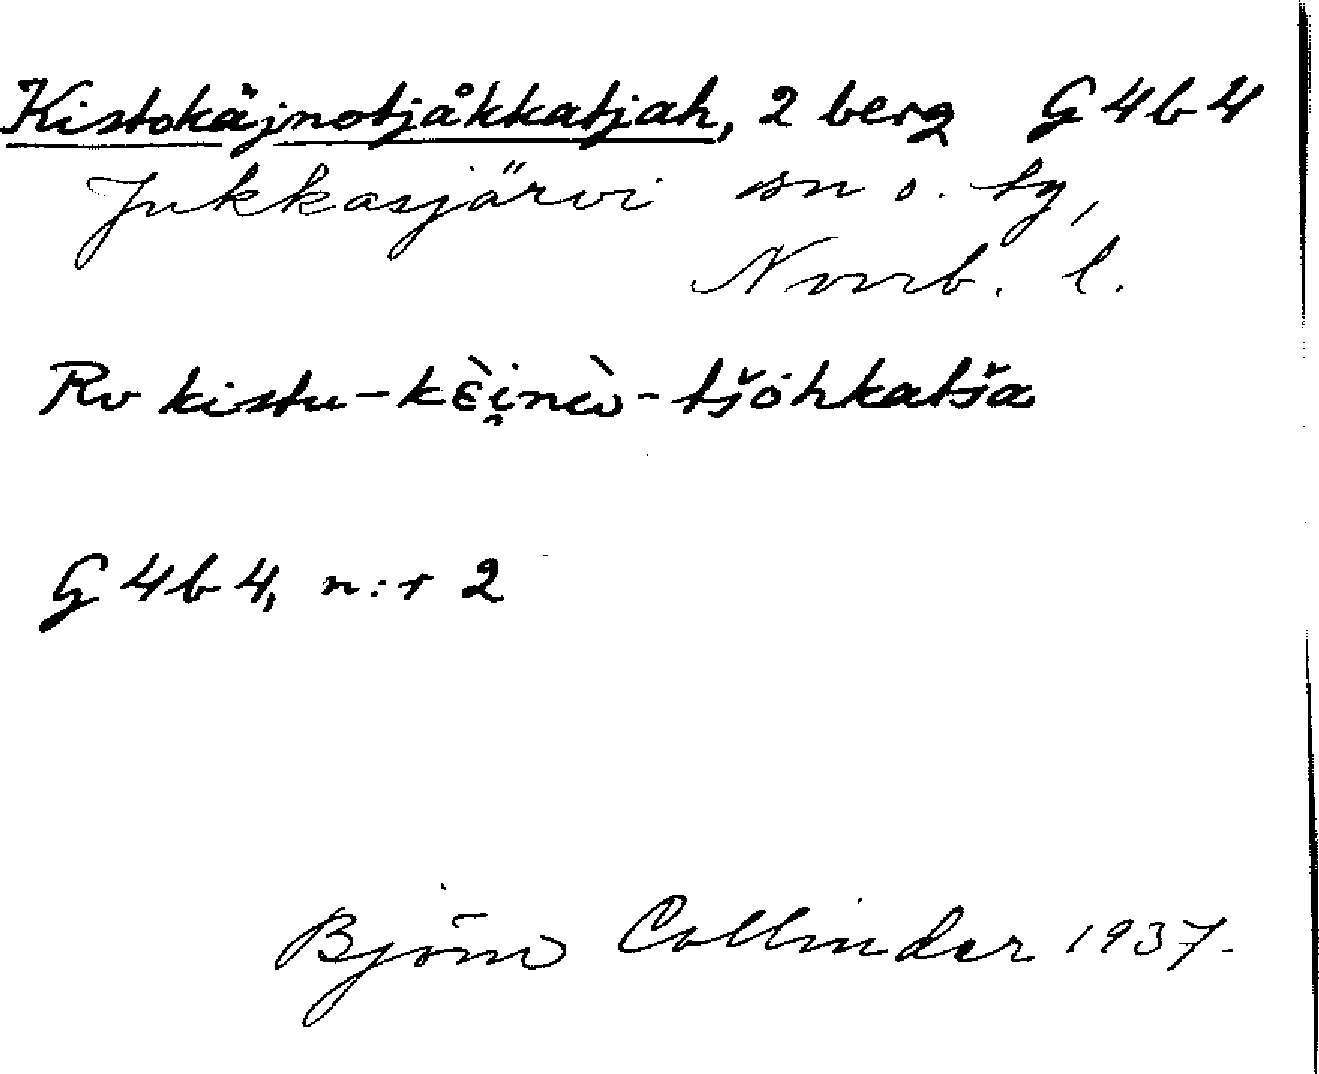 Kistokäjnotjåkkatjah, 2 berg G4b4
Jukkasjärvi sn o. tg,
Norrb. l.
Rv kistu-kɛ̀i̭nò-tšòhkatša
G4b4, n:r 2
Björn Collinder 1937.